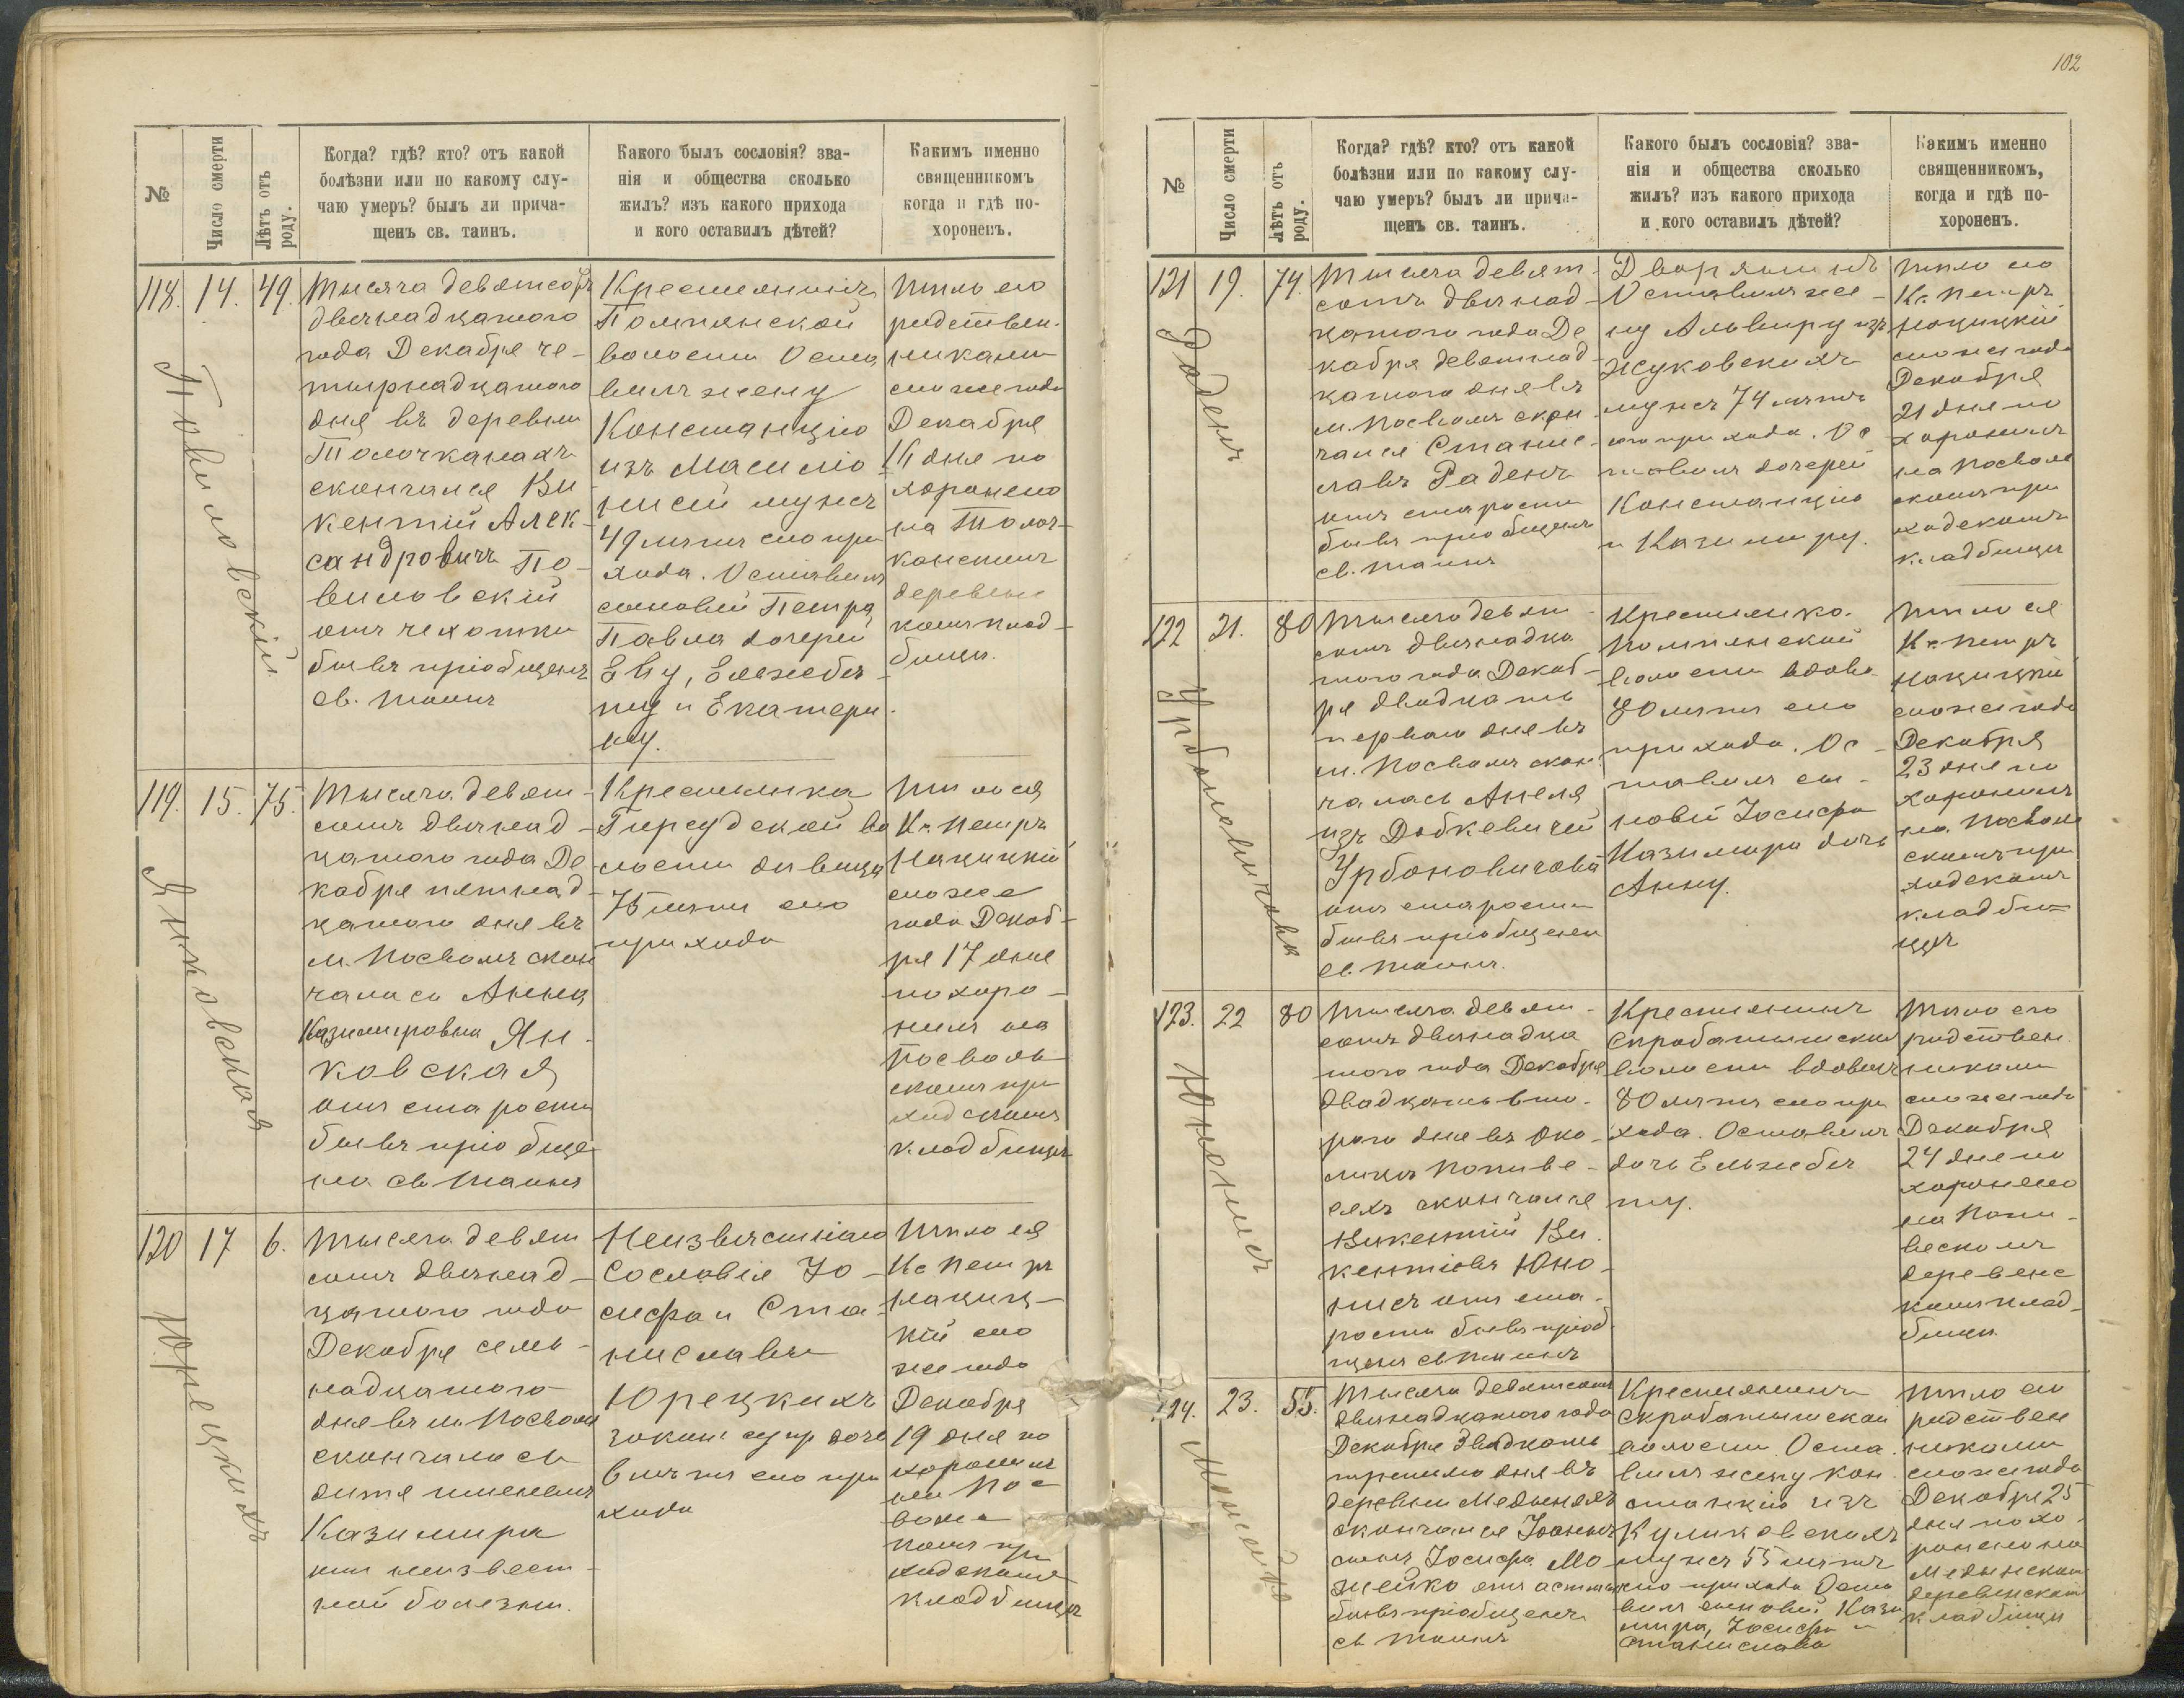 102
№
Число смерти
Лѣтъ отъ роду.
Когда? гдѣ? кто? отъ какой
болѣзни или по какому слу-
чаю умеръ? былъ ли прича-
щенъ св. таинъ.
Какого былъ сословія? зва-
нія и общества сколько
жилъ? изъ какого прихода
и кого оставилъ дѣтей?
Какимъ именно
священникомъ
когда и гдѣ по-
хороненъ.
118. 14. 49.
Повиловскій
Тысяча девятсотъ
двѣнадцатого
года Декабря че-
тырнадцатого
дня въ деревни
Толочканахъ
скончался Ви
кентій Алек-
сандровичъ По-
виловскій
отъ чехотки
бывъ пріобщенъ
св. таинъ
Крестьянинъ
Помпянской
волости Оста
вилъ жену
Констанцію
изъ
мужъ
49 лѣтъ сего при
хода. Оставилъ
сыновей Петра
Павла дочерей
Еву, Ельжбѣ-
ту и Екатери-
ну.
Тѣло его
родствен-
никами
сего же года
Декабря
дня по
хоронено
на Толоч-
канскимъ
деревенс
комъ клад-
бищи.
119. 15. 75.
Янковская
Тысяча девят-
сотъ двѣнад-
цатого года Де
кабря пятнад-
цатого дня въ
м. Посволѣ скон
чалась Анна
Казимировна Ян-
ковская
отъ старости
бывъ пріобще
на св таинъ
Крестьянка
во
лости дѣвица
75 лѣтъ сего
прихода
Тѣло ея
Кс. Петръ
Нацицкій
сего же
года Декаб-
ря 17 дня
похоро-
нилъ на
Посволь
скомъ при
ходскомъ
кладбищѣ
120 17 6.
Юрецкихъ
Тысяча девят
сотъ двѣнад-
цатого года
Декабря семь-
надцатого
дня въ м. Посволѣ
скончалась
дитя именемъ
Казимира
неизвест-
ной болезни.
Неизвѣстнаго
Сословія Іо-
сифа и Ста-
нислави
Юрецкихъ
закон: супр дочь
6 лѣтъ сего при
хода
Тѣло ея
Кс Петръ
Нациц-
кій сего
же года
Декабря
19 дня по
хоронилъ
на Пос
воль
комъ при
ходскомъ
кладбищѣ
№
Число смерти
Лѣтъ отъ роду.
Когда? гдѣ? кто? отъ какой
болѣзни или по какому слу-
чаю умеръ? былъ ли прича-
щенъ св. таинъ.
Какого былъ сословія? зва-
нія и общества сколько
жилъ? изъ какого прихода
и кого оставилъ дѣтей?
Какимъ именно
священникомъ,
когда и гдѣ по-
хороненъ.
121 19. 74.
Раденъ
Тысяча девят-
сотъ двѣнад-
цатого года Де
кабря девятнад-
цатого дня въ
м. Посволѣ скон-
чался Станис-
лавъ Раденъ
отъ старости
бывъ пріобщенъ
св. таинъ
Дворянинъ
Оставилъ же-
ну Альвиру изъ
Жуковскихъ
мужъ 74 лѣтъ
сего прихода. Ос
тавилъ дочерей
Констанцію
и Казимиру.
Тѣло его
Кс. Петръ
Нацицкій
сего же года
Декабря
21 дня по
хоронилъ
на Посволь
скомъ при
ходскомъ
кладбищѣ
122 21. 80
Урбановичова
Тысяча девят-
сотъ двѣнадца
того года Декаб-
ря двадцать
первого дня въ
м. Посволѣ скон
чалась Анеля
изъ Добкевичей
Урбоновичова
отъ старости
бывъ пріобщена
св. таинъ.
Крестьянка
Помпянской
волости вдова
80 лѣтъ сего
прихода. Ос-
тавила сы-
новей Іосифа
Казимира дочь
Анну.
Тѣло ея
Кс. Петръ
Нацицкій
сего же года
Декабря
23 дня по
хоронилъ
на Посволь
скомъ при
ходскомъ
кладби-
щѣ
123. 22 80
Юнонисъ
Тысяча девят-
сотъ двѣнадца
того года Декабря
двадцать вто-
рого дня въ око-
лицѣ Папиве-
сяхъ скончался
Викентій Ви-
кентіевъ Юно-
нисъ отъ ста-
рости бывъ пріоб
щенъ св таинъ
Крестьянинъ
Скробатишской
волости вдовецъ
80 лѣтъ сего при
хода. Оставилъ
дочь Ельжбѣ
ту.
Тѣло его
родствен
никами
сего же года
Декабря
24 дня по
хоронено
на Папи-
вескомъ
деревенс
комъ клад-
бищи
124. 23. 55.
Можейко
Тысяча девятсотъ
двѣнадцатого года
Декабря двадцать
третьяго дня въ
деревни Медыняхъ
скончался Іоаннъ
сынъ Іосифа Мо-
жейко отъ астмы
бывъ пріобщенъ
св таинъ
Крестьянинъ
Скробатишской
волости. Оста-
вилъ жену Кон-
станцію изъ
Куликовскихъ
мужъ 55 лѣтъ
сего прихода Оста
вилъ сыновей Кази
мира, Іосифа и
Станислава
Тѣло его
родствен
никами
сего же года
Декабря 25
дня похо-
ронено на
Медынскомъ
деревенскомъ
кладбищи